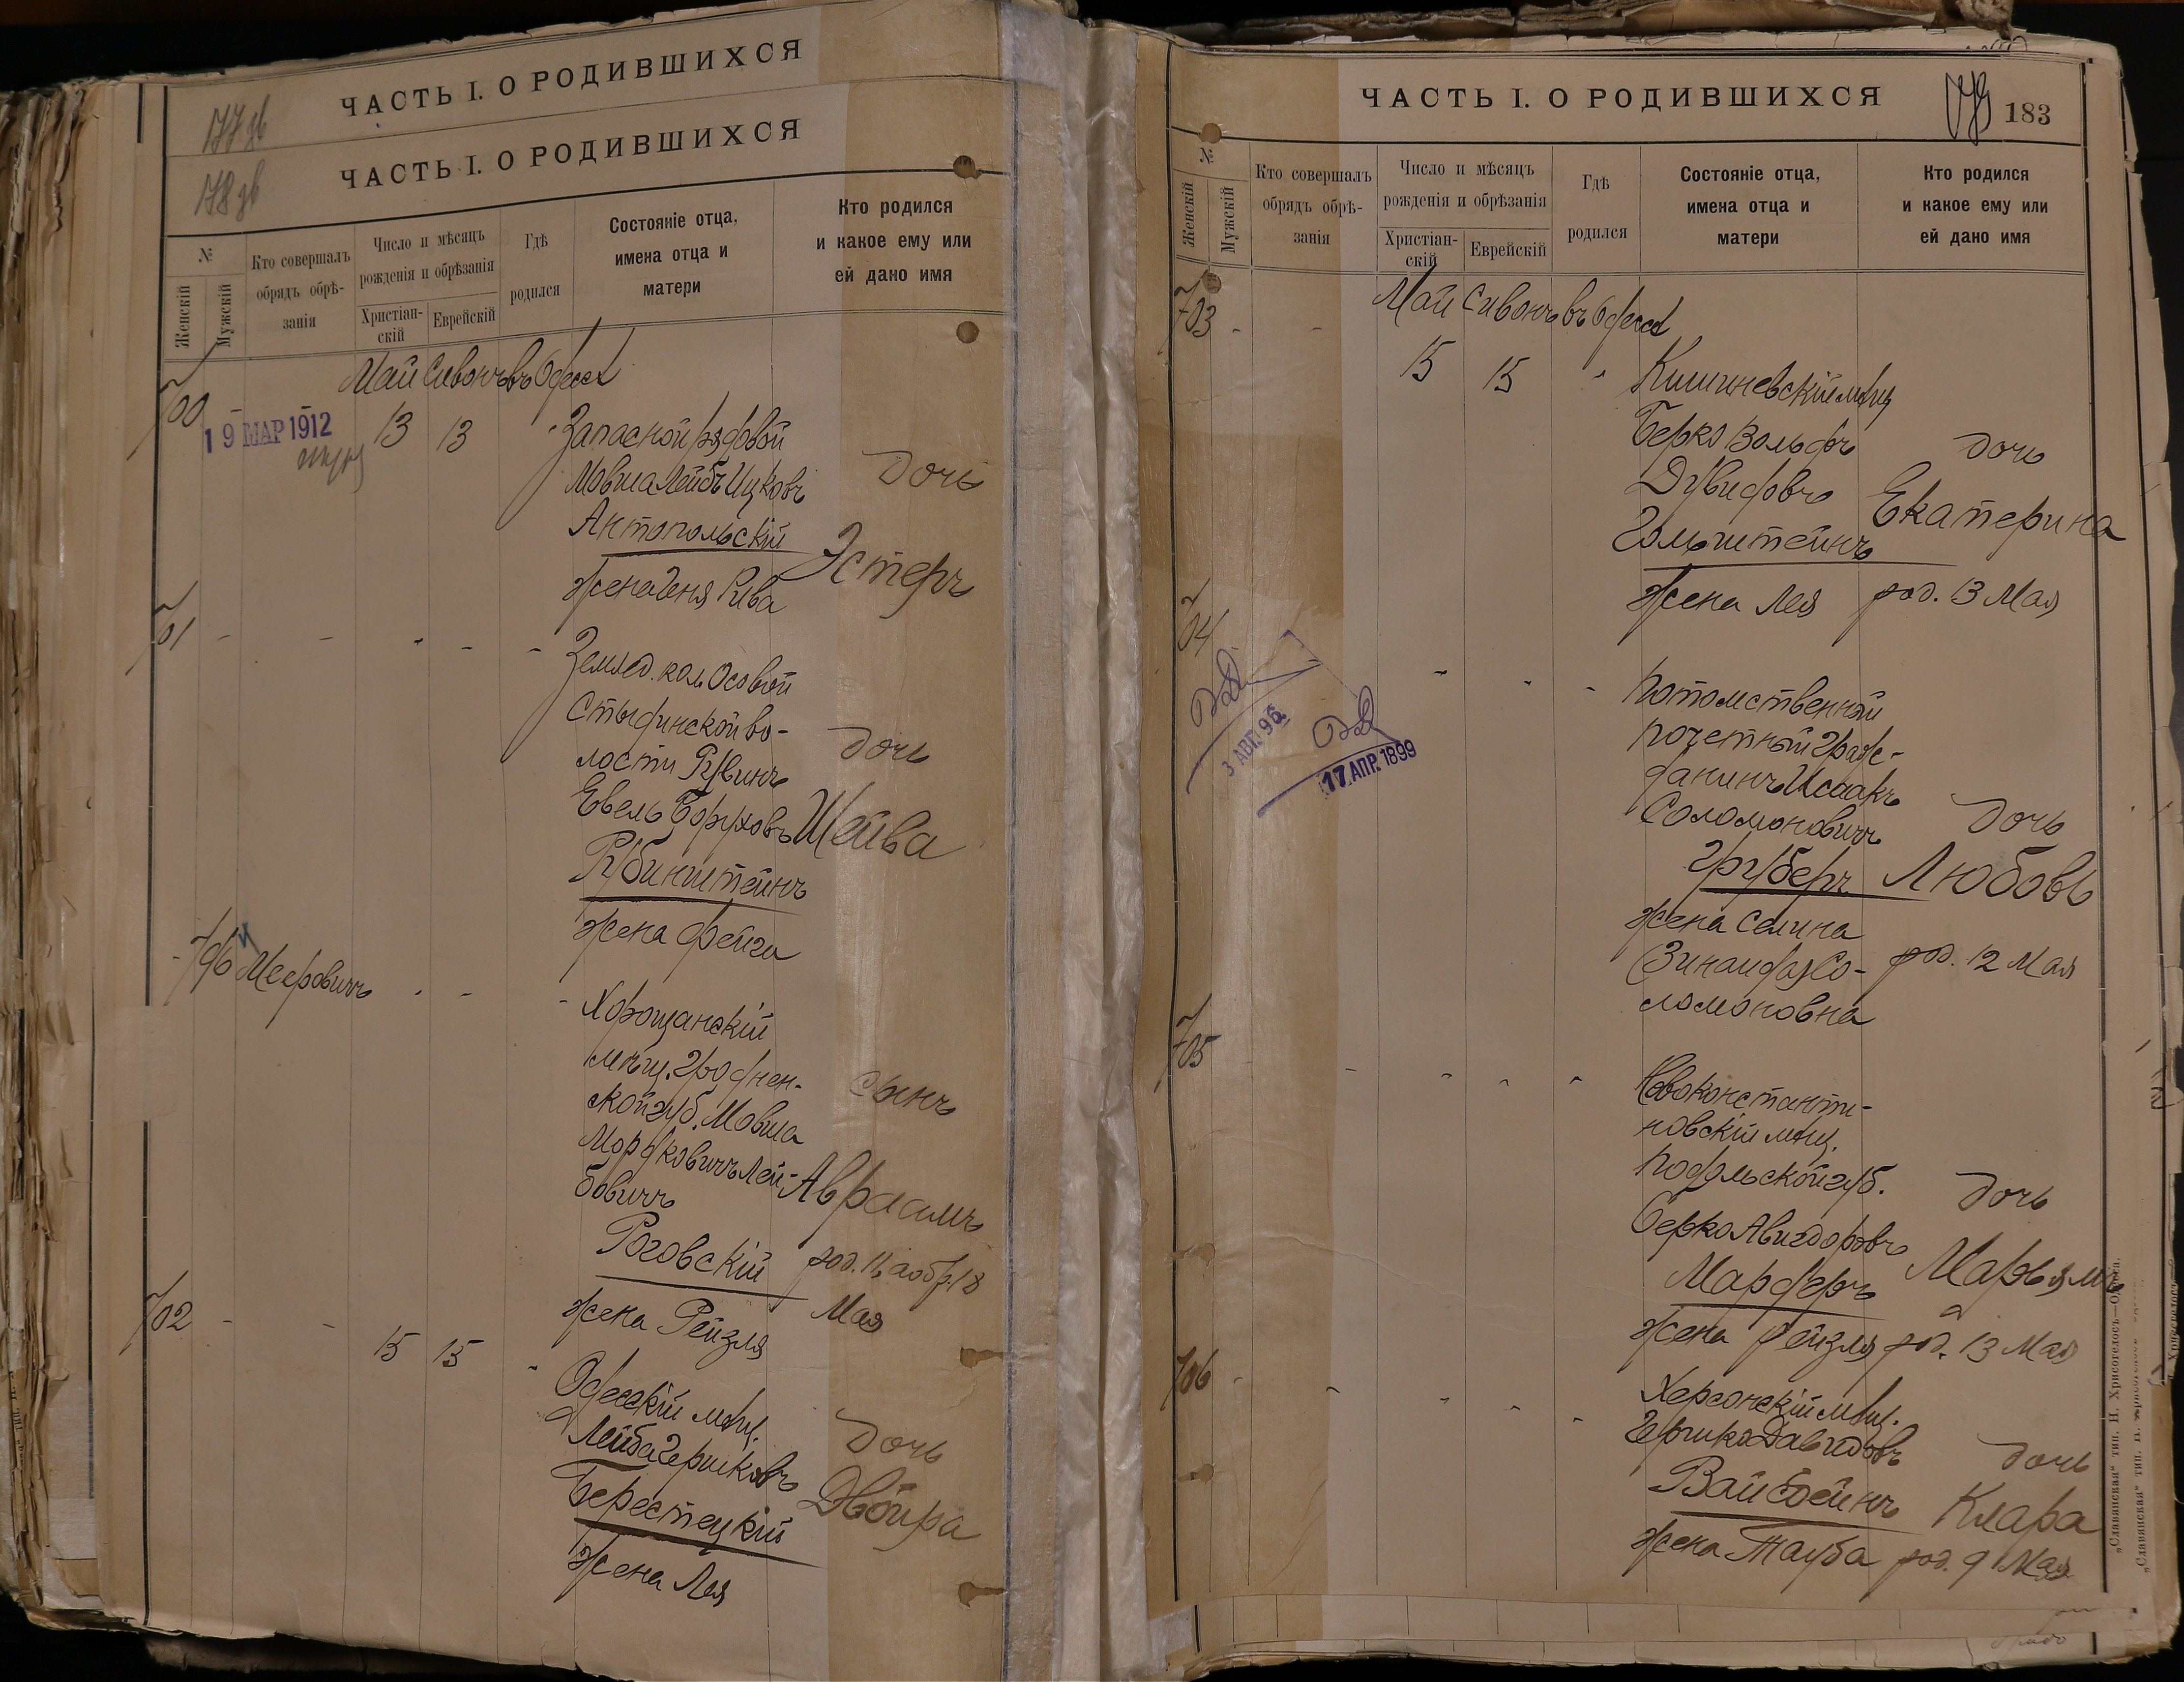 ЧАСТЬ I. О РОДИВШИХСЯ
177 зв
ЧАСТЬ I. О РОДИВШИХСЯ
178 зв
№
Женскій
Мужскій
Кто совершалъ
обрядъ обрѣ-
занія
Число и мѣсяцъ
рожденія и обрѣзанія
Христіан-
скій
Еврейскій
Гдѣ
родился
Состояніе отца,
имена отца и
матери
Кто родился
и какое ему или
ей дано имя
Май Сивонъ въ Одессѣ
700 - -
19 МАР 1912
13 13 " Запасной рядовой
Мовша Лейбъ Ицковъ
Антопольскій
жена Геня Рива
Дочь
Эстеръ
701 - - - - -
Землед. кол. Осовой
Стыдинской во-
лости Рувинъ
Евель Боруховъ
Рубинштейнъ
жена Фейга
Дочь
Шейва
- 796 Мееровичъ - - -
Хорощанскій
мѣщ. Гроднен-
ской губ. Мовша
Мордковичъ Лей-
бовичъ
Роговскій
жена Рейзля
Сынъ
Авраамъ
род. 11, а обр. 18
Мая
702 - - 15 15 -
Одесскій мѣщ.
Лейба Гершковъ
Берестецкій
жена Лея
Дочь
Двойра
ЧАСТЬ I. О РОДИВШИХСЯ
179
183
№
Женскій
Мужскій
Кто совершалъ
обрядъ обрѣ-
занія
Число и мѣсяцъ
рожденія и обрѣзанія
Христіан-
скій
Еврейскій
Гдѣ
родился
Состояніе отца,
имена отца и
матери
Кто родился
и какое ему или
ей дано имя
703 - - Май Сивонъ въ Одессѣ
15 15 " Кишиневскій мѣщ
Берко Вольфъ
Дувидовъ
Гольштейнъ
жена Лея
Дочь
Екатерина
род. 13 Мая
704
3 АВГ. 96
17 АПР. 1899
Потомственный
почетный граж-
данинъ Исаакъ
Соломоновичъ
Груберъ
жена Селина
(Зинаида) Со-
ломоновна
Дочь
Любовь
род. 12 Мая
705 - " " "
Новоконстанти-
новскій мѣщ.
Подольской губ.
Берко Авигдоровъ
Мардеръ
жена Рейзля
Дочь
Марьямъ
род. 13 Мая
706 - - " " "
Херсонскій мѣщ.
Гершко Давидовъ
Вайсбейнъ
жена Тауба
Дочь
Клара
род. 9 Мая
„Славянская“ тип. Н. Хрисогелосъ—Одесса.